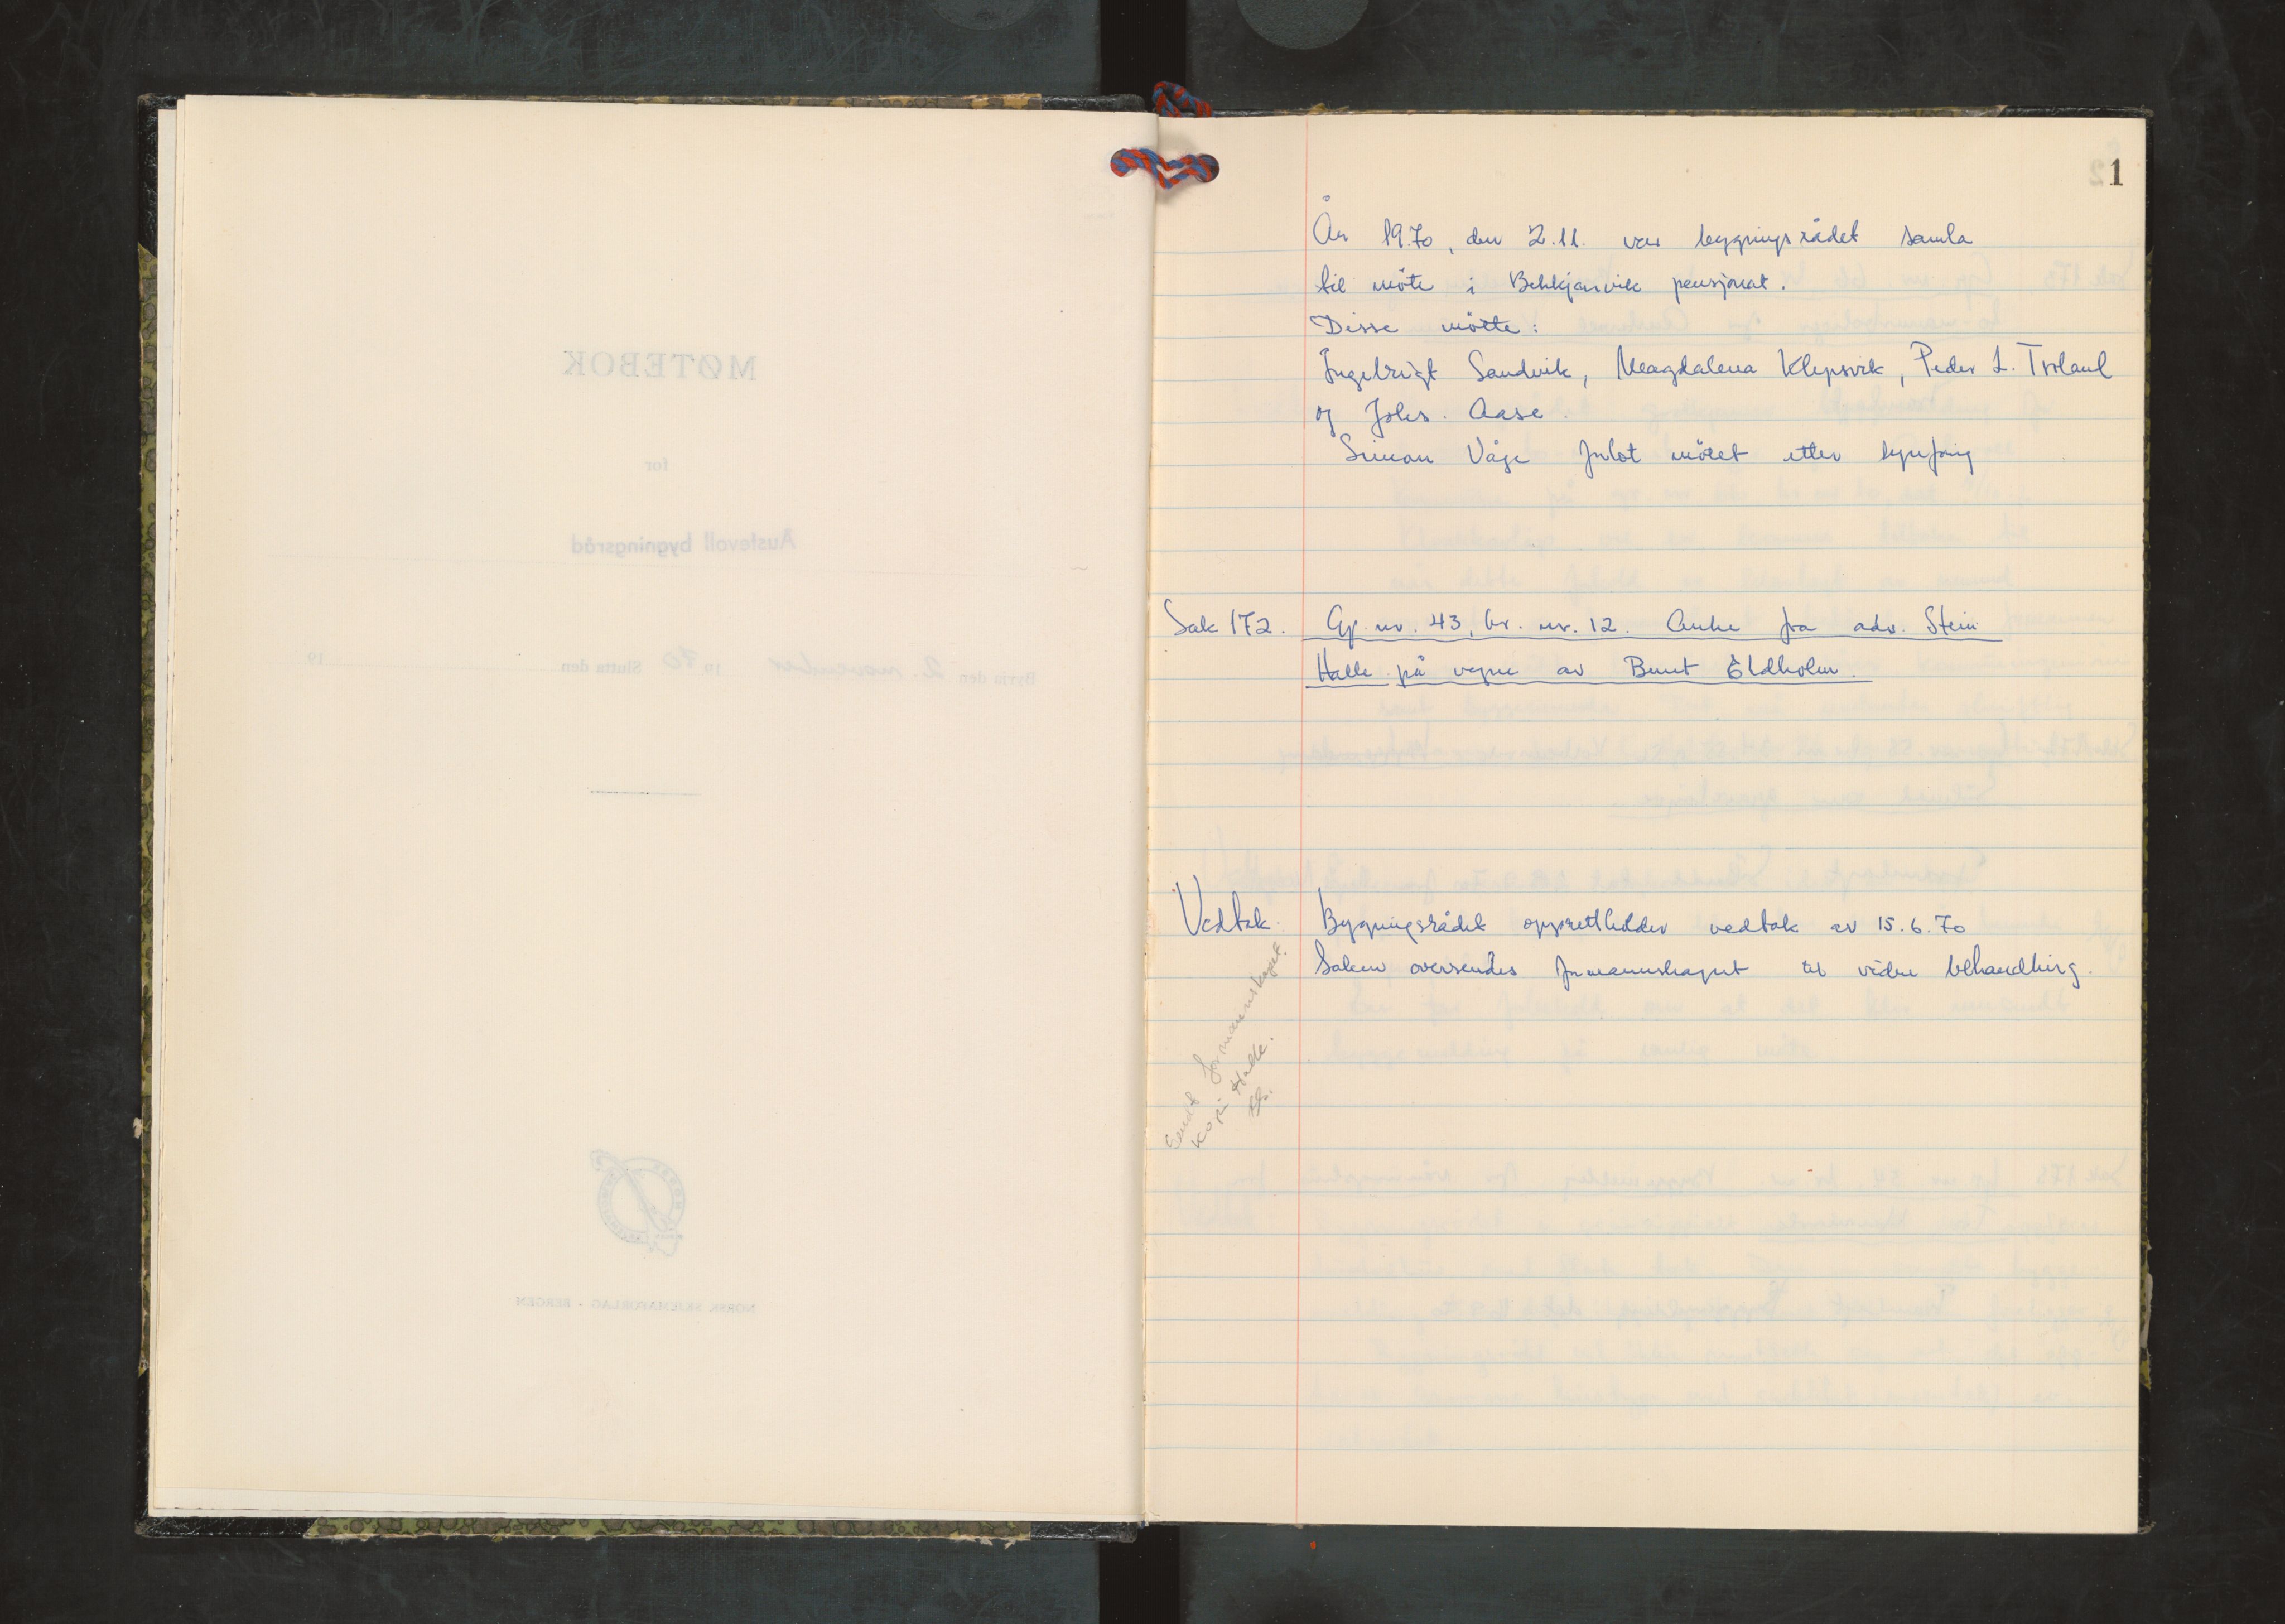 MØTEBOK
for
Austevoll bygningsråd
Byrja den 2. november 1970 Slutta den 19
NORSK SKJEMAFORLAG · BERGEN
1
År 1970, den 2.11. var bygningsrådet samla
til möte i Bekkjarvik pensjonat.
Disse mötte:
Ingebrigt Sandvik, Magdalena Klepsvik, Peder L. Troland
og Johs. Aase.
Simon Våge forlot mötet etter synfaring
Sak 172. Gp. nr. 43, br. nr. 12. Anke fra adv. Stein
Halle på vegne av Bernt Eldholm.
Vedtak. Bygningsrådet opprettholder vedtak av 15.6.70
Saken oversendes formannskapet til videre behandling.
Sendt formannskapet.
Kopi Halle.